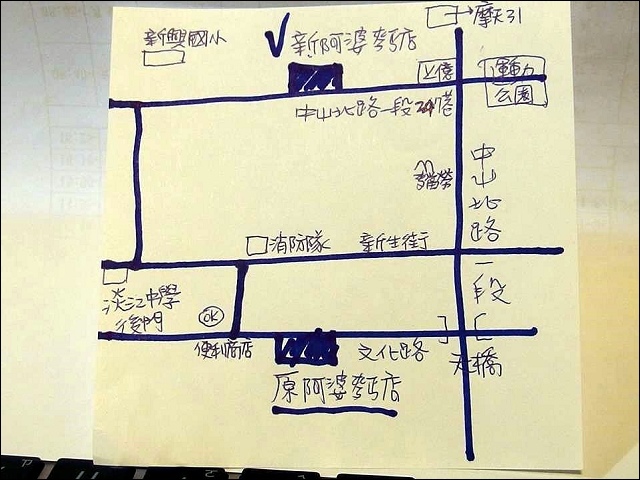 摩天31
新興國小
新阿婆麵店
上億
運動
公園
中山北路一段247巷
麥當勞
中山北路一段
消防隊
新生街
淡江中學
後門
OK
便利商店
文化路
天橋
原阿婆麵店